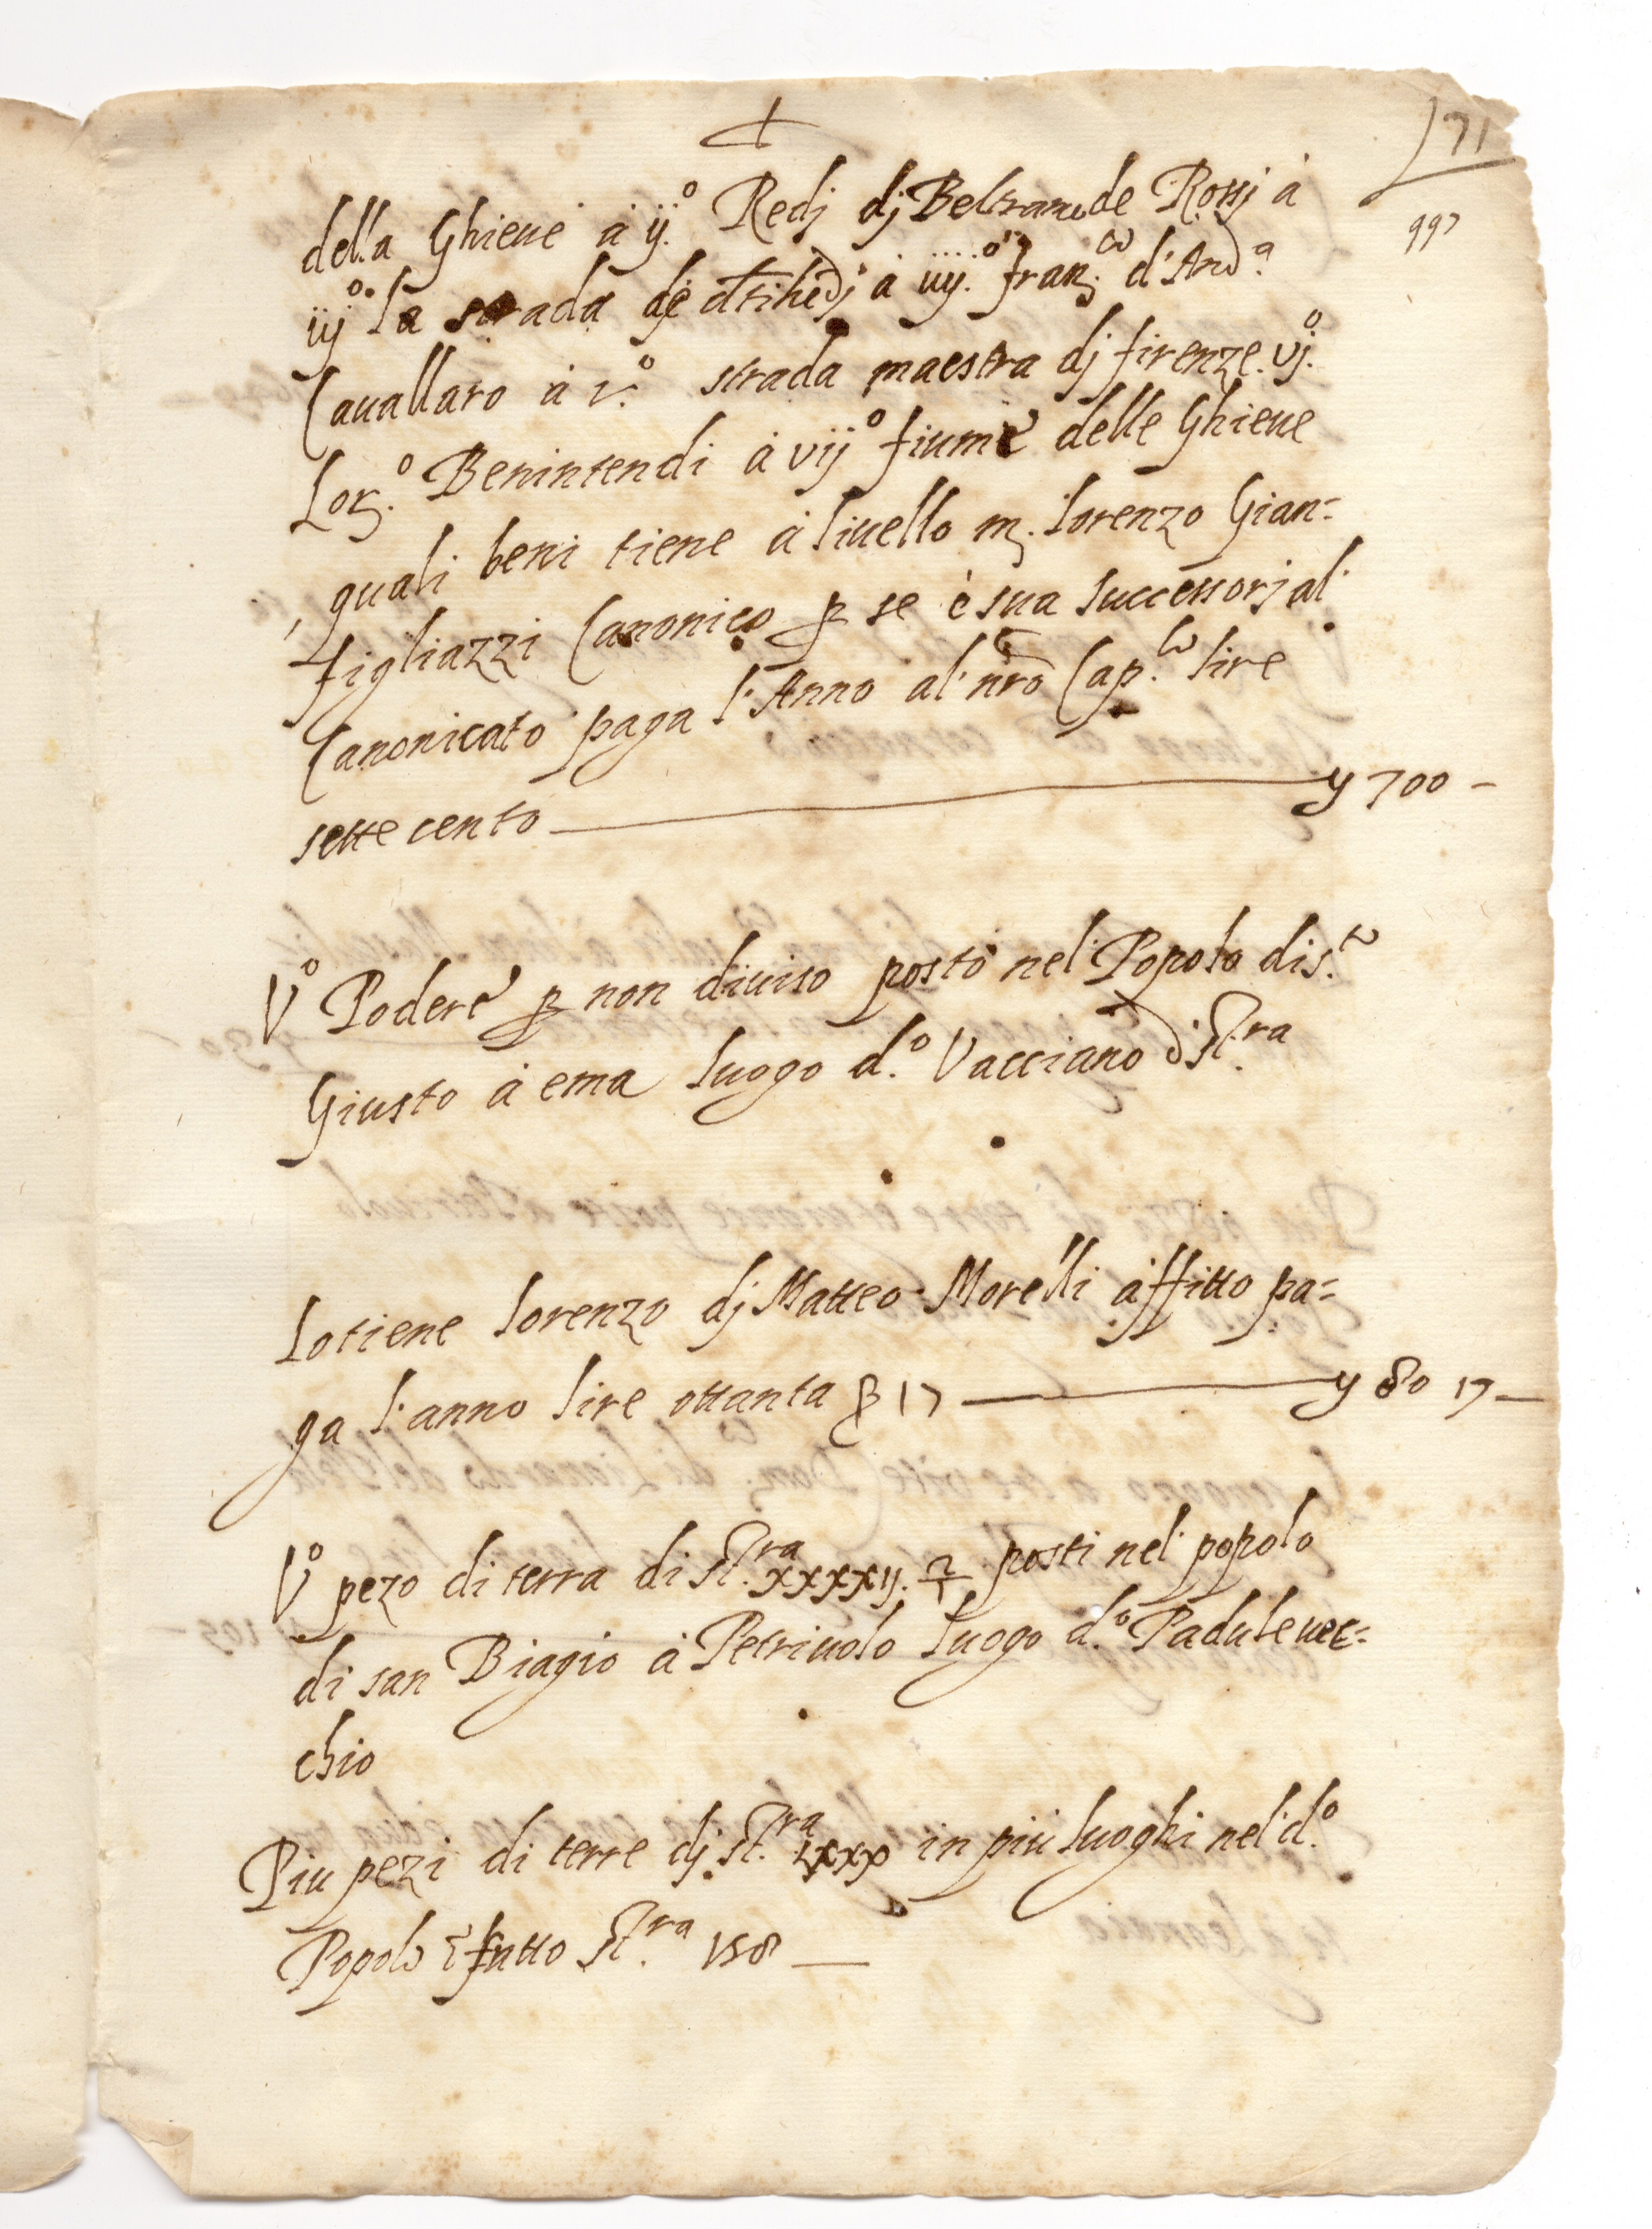 171
997
della Ghieue à ij.º Redj dj Beltramo de Rossj à
iijº. la strada à iiij.º Franc.º d'And.ª
Cauallaro à v.º strada maestra dj firenze. vj.º
Lorz.º Benintendi à vijº fiume delle Ghieue
quali beni tiene à liuello m. lorenzo Gian=
figliazzi Canonico p se è sua successorj al
Canonicato paga l'Anno al nro Cap.lo lire
sette cento y 700 -
Vº Podere p non diuiso posto nel Popolo di s.to
Giusto à ema luogo d.º Vacciano di st.ra
Lo tiene lorenzo dj Matteo Morelli affitto pa=
ga l'anno lire ottanta 17 y 80 17 -
Vº pezo di terra di st.ra xxxxij. posti nel popolo
di san Biagio à Petriuolo luogo d.º Padule uec=
chio
Piu pezi di terre dj st.ra Lxxx in più luoghi nel d.º
Popolo tutto st.ra 158 -